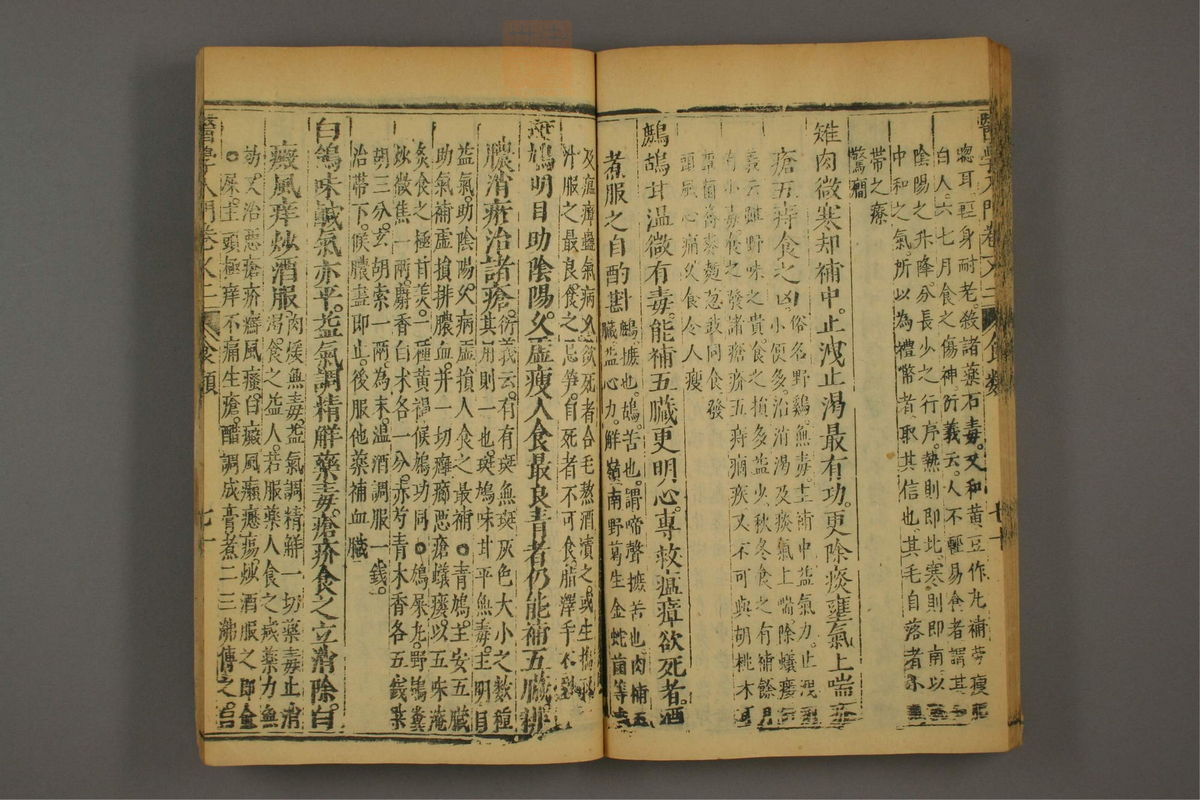 醫學入門卷之二 食類 七十
聰耳輕身耐老殺諸藥石毒。又和黃豆作丸補勞瘦肥
白人。六七月食之傷神。衍義云。人不輕易食者謂其知
陰陽之升降。分長少之行序。熱則即北。寒則即南。以就
中和之氣。所以為禮幣者取其信也。其毛自落者小兒
帶之療
驚癇
雉肉微寒却補中。止洩止渴最有功。更除痰壅氣上喘。
瘡五痔食之凶。俗名野雞。無毒。主補中益氣力。止洩
小便多。治消渴及痰氣上喘。除蟻瘻。
義云雖野味之貴。食之損多益少。秋冬食之有補。餘月
有小毒。食之發諸瘡疥五痔癇疾。又不可與胡桃木耳
菌蕈蕎麥麵葱豉同食。發
頭風心痛。久食令人瘦
鷓鴣甘溫微有毒。能補五臟更明心。專救瘟瘴欲死者。酒
煮服之自酌斟。鷓摭也。鴣。苦也。謂啼聲摭苦也。肉補五
臟益心力。解嶺南野葛生金蛇菌等毒
及瘟瘴蠱氣病欲死者。合毛熬酒漬之。或生搗取
汁服之最良。食之忌笋。自死者不可食。脂澤手不裂
斑鳩明目助陰陽。久虛瘦人食最良。青者仍能補五臟。排
膿消瘀治諸瘡。衍義云。有有斑無斑灰色大小之數種
其用則一也。斑鳩味甘平無毒。主明目
益氣。助陰陽。久病虛損人食之最補。○青鳩。主安五臟
助氣補虛損排膿血。并一切癰癤惡瘡蟻瘻。以五味淹
炙食之極甘美。一種黃褐候鳩功同。○鳩屎丸。野鳩糞
炒微焦一兩。麝香白朮各一分。赤芍青木香各五錢柴
胡三分。玄胡索一兩為末。溫酒調服一錢。
治帶下。候膿盡即止。後服他藥補血臟
白鴿味鹹氣亦平。益氣調精解藥毒。瘡疥食之立消除。白
癜風痒炒酒服。肉煖無毒。益氣調精。解一切藥毒。止消
渴。食之益人。若服藥人食之減藥力無
効。又治惡瘡疥癬風瘙。白癜風癧瘍。炒酒服之即愈
○屎。主頭極痒不痛生瘡。醋調成膏煮二三沸傅之。治
醫學入門卷之二 食類 七十一